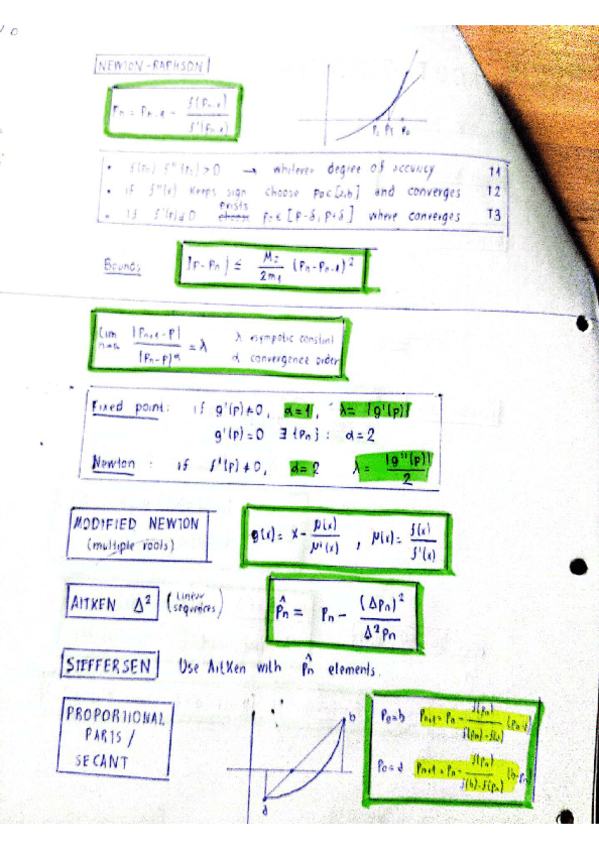 NEWTON-RAPHSON
Pn = Pn-1 - f(Pn-1) / f'(Pn-1)
P2 P1 P0
• f(p0) f''(p0) > 0 → whatever degree of accuracy T1
• if f''(x) keeps sign choose p0 ∈ [a,b] and converges T2
• If f'(x) ≠ 0 exists p0 ∈ [p-δ, p+δ] where converges T3
Bounds |p-pn| ≤ M2 / 2m1 (pn-pn-1)²
lim n→∞ |pn+1-p| / |pn-p|^α = λ
λ asympotic constant
α convergence order
Fixed point: if g'(p) ≠ 0, α=1, λ = |g'(p)|
g'(p) = 0 ∃ {pn} : α=2
Newton : if f'(p) ≠ 0, α=2 λ = |g''(p)| / 2
MODIFIED NEWTON
(multiple roots)
g(x) = x - μ(x) / μ'(x) , μ(x) = f(x) / f'(x)
AITKEN Δ² (linear sequences)
p̂n = pn - (Δpn)² / Δ²pn
STEFFERSEN Use Aitken with p̂n elements.
PROPORTIONAL
PARTS /
SECANT
a b
P0=b Pn+1 = Pn - f(pn) / f(pn)-f(a) (pn-a)
P0=a Pn+1 = Pn - f(pn) / f(b)-f(pn) (b-pn)